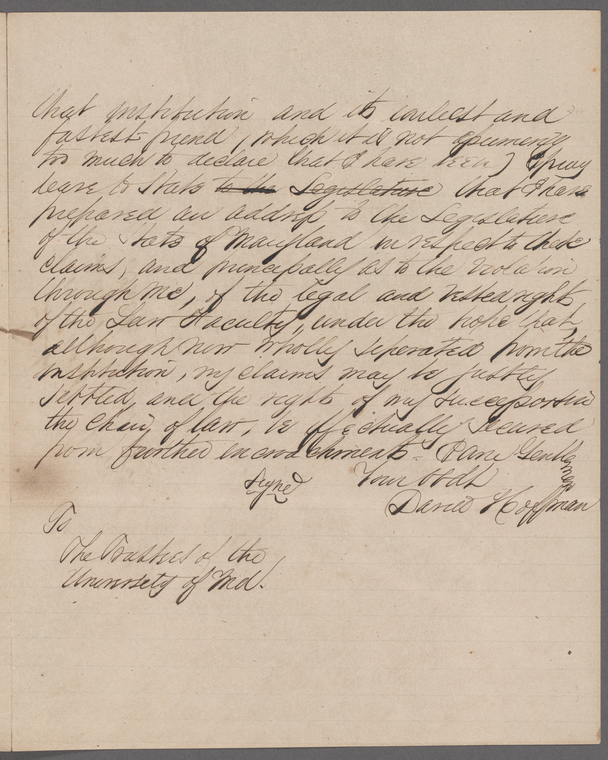 that institution and its earliest and
fastest friend, which it is not assuming
too much to declare that I have been) I pray
leave to state to the Legislature that I have
prepared an address to the Legislature
of the State of Maryland in respect to these
claims, and principally as to the violation
through me, of the legal and vested rights
of the Law Faculty, under the hope that,
although now wholly seperated from the
institution, my claims may be justly
settled, and the rights of my successors in
the Chair, of law, be effectually secured
from further encroachments. I am Gentlemen
Your Obdt
Signed
David Hoffman
To
The Trustees of the
University of Md.